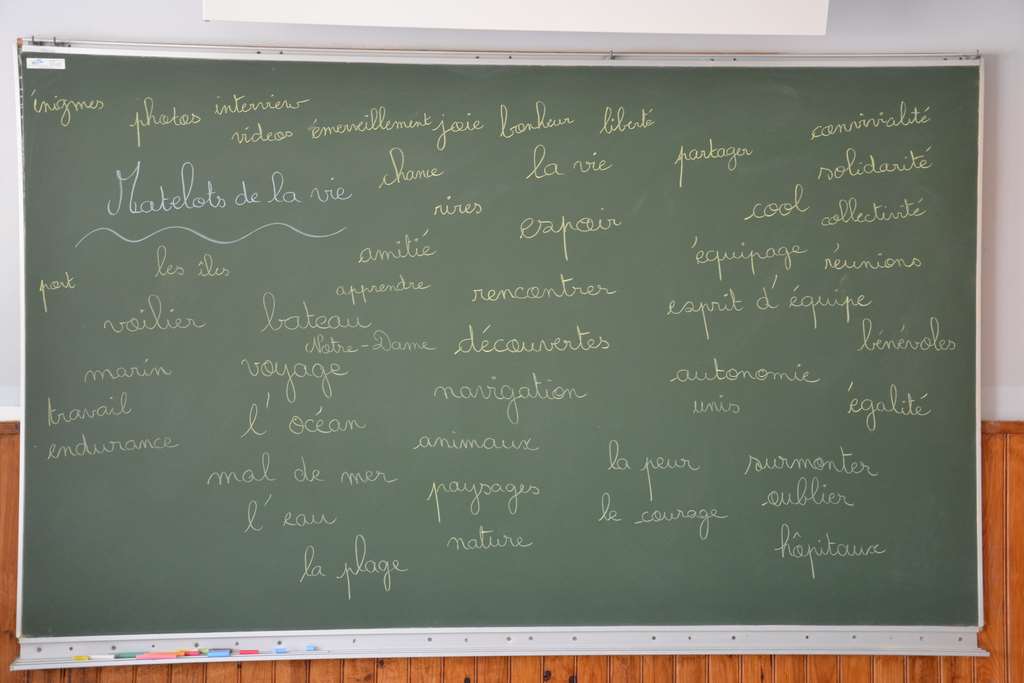 énigmes
photos interview
videos émerveillement joie bonheur liberté
convivialité
chance
la vie
partager
solidarité
Matelots de la vie
rires
espoir
cool
collectivité
les îles
amitié
équipage
réunions
port
apprendre
rencontrer
esprit d'équipe
voilier
bateau
Notre-Dame
découvertes
bénévoles
marin
voyage
navigation
autonomie
travail
l'océan
unis
égalité
endurance
animaux
mal de mer
la peur
surmonter
paysages
oublier
l'eau
le courage
nature
hôpitaux
la plage